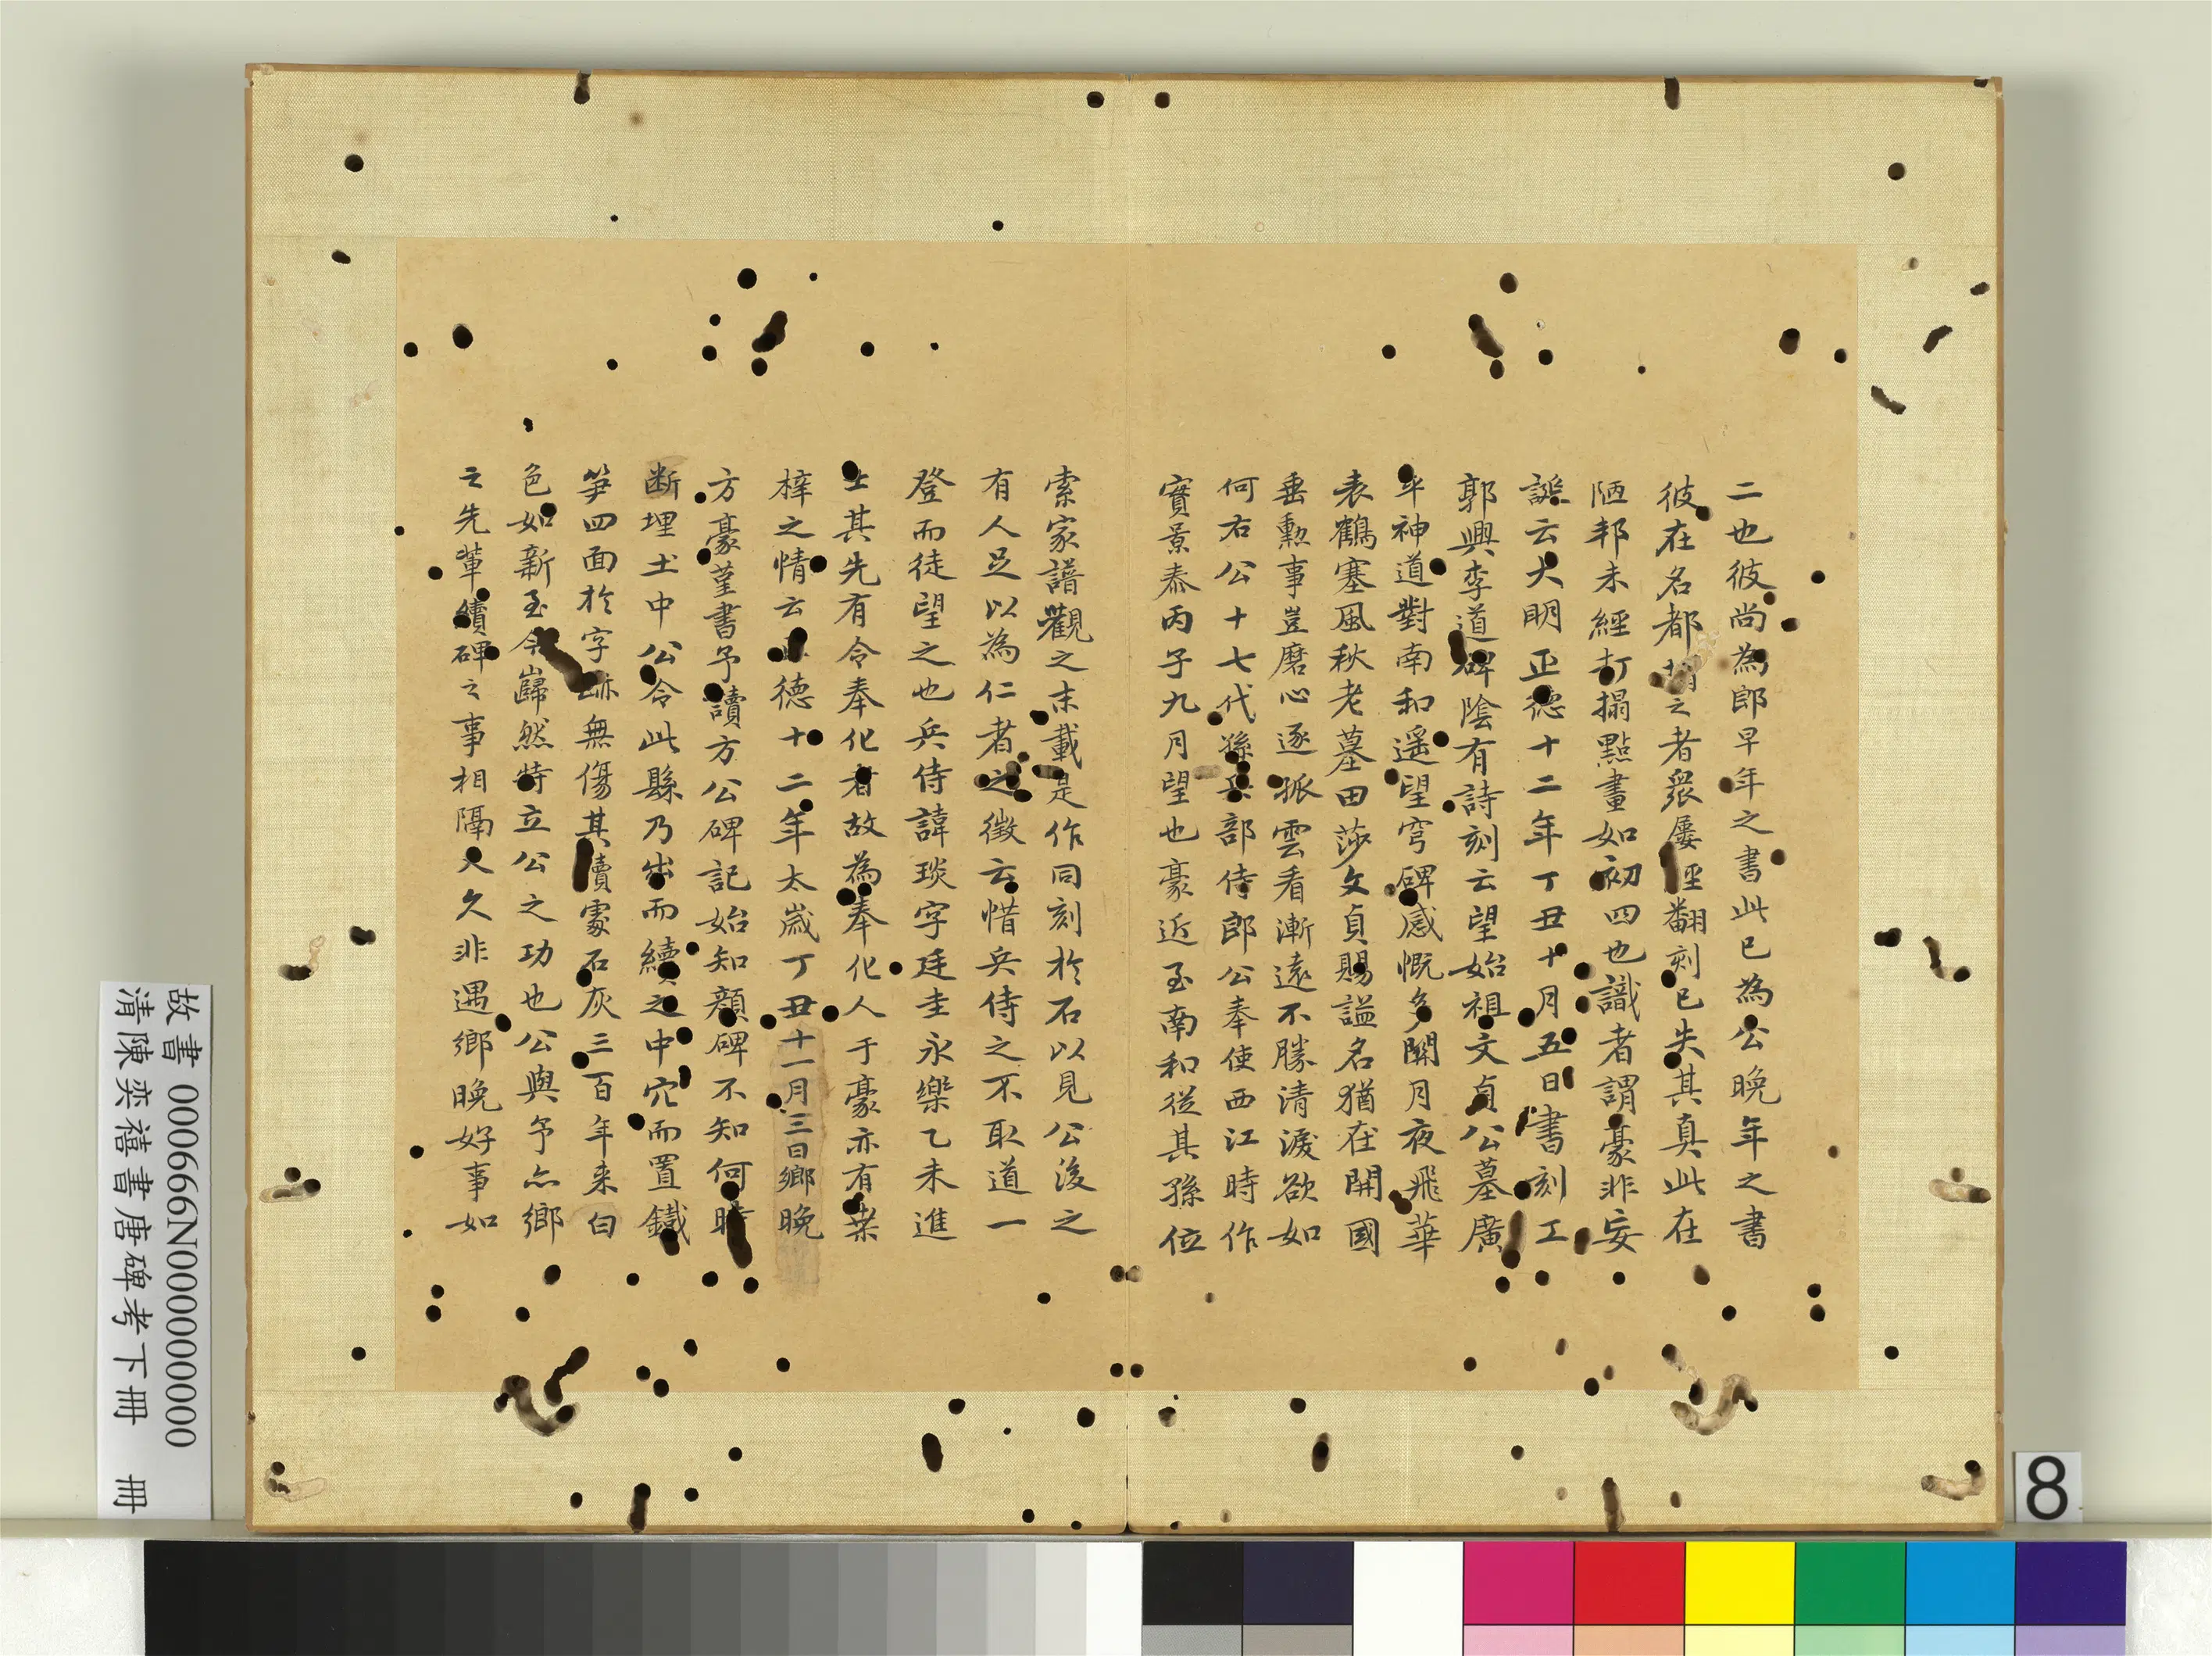 二也彼尚為郎早年之書此已為公晚年之書
彼在名都搨之者衆屢經翻刻已失其真此在
陋邦未經打搨點畫如初四也識者謂豪非妄
誕云大明正德十二年丁丑十月五日書刻工
郭興李道碑陰有詩刻云望始祖文貞公墓廣
平神道對南和遥望穹碑感慨多關月夜飛華
表鶴塞風秋老墓田莎文貞賜謚名猶在開國
垂勲事豈磨心逐孤雲看漸遠不勝清淚欲如
何右公十七代孫兵部侍郎公奉使西江時作
實景泰丙子九月望也豪近至南和從其孫位
索家譜觀之末載是作同刻於石以見公後之
有人足以為仁者之徵云惜兵侍之不取道一
登而徒望之也兵侍諱琰字廷圭永樂乙未進
士其先有令奉化者故為奉化人于豪亦有桒
梓之情云正德十二年太歲丁丑十一月三日鄉晚
方豪堇書予讀方公碑記始知顔碑不知何時
断埋土中公令此縣乃出而續之中穴而置鐵
笋四面於字跡無傷其續處石灰三百年来白
色如新至今巋然特立公之功也公與予亦鄉
之先輩續碑之事相隔又久非遇鄉晚好事如
故書 000666N000000000
清陳奕禧書唐碑考下冊 冊
8